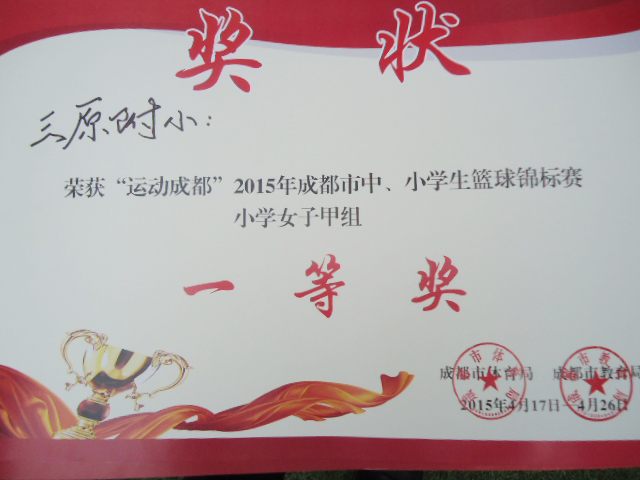 奖状
三原附小：
荣获“运动成都”2015年成都市中、小学生篮球锦标赛
小学女子甲组
一等奖
成都市体育局 成都市教育局
2015年4月17日—4月26日